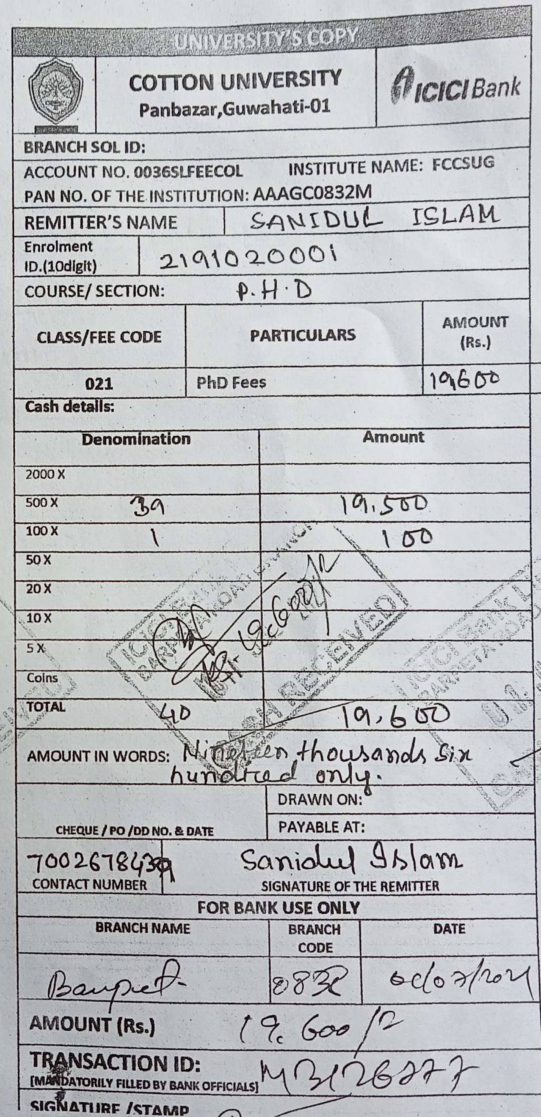 UNIVERSITY'S COPY
COTTON UNIVERSITY
Panbazar,Guwahati-01
ICICI Bank
BRANCH SOL ID:
ACCOUNT NO. 0036SLFEECOL INSTITUTE NAME: FCCSUG
PAN NO. OF THE INSTITUTION: AAAGC0832M
REMITTER'S NAME SANIDUL ISLAM
Enrolment
ID.(10digit) 2191020001
COURSE/ SECTION: P.H.D
CLASS/FEE CODE PARTICULARS AMOUNT
(Rs.)
021 PhD Fees 19,600
Cash details:
Denomination Amount
2000 X
500 X 39 19,500
100 X 1 100
50 X
20 X
10 X
5 X
Coins
TOTAL 40 19,600
ICICI BANK
BARPETA ROAD BRANCH
CASH RECEIVED
AMOUNT IN WORDS: Nineteen thousands six
hundred only.
DRAWN ON:
CHEQUE / PO /DD NO. & DATE PAYABLE AT:
7002678439 Sanidul Islam
CONTACT NUMBER SIGNATURE OF THE REMITTER
FOR BANK USE ONLY
BRANCH NAME BRANCH
CODE DATE
AMOUNT (Rs.) 19,600/
TRANSACTION ID:
[MANDATORILY FILLED BY BANK OFFICIALS]
SIGNATURE /STAMP